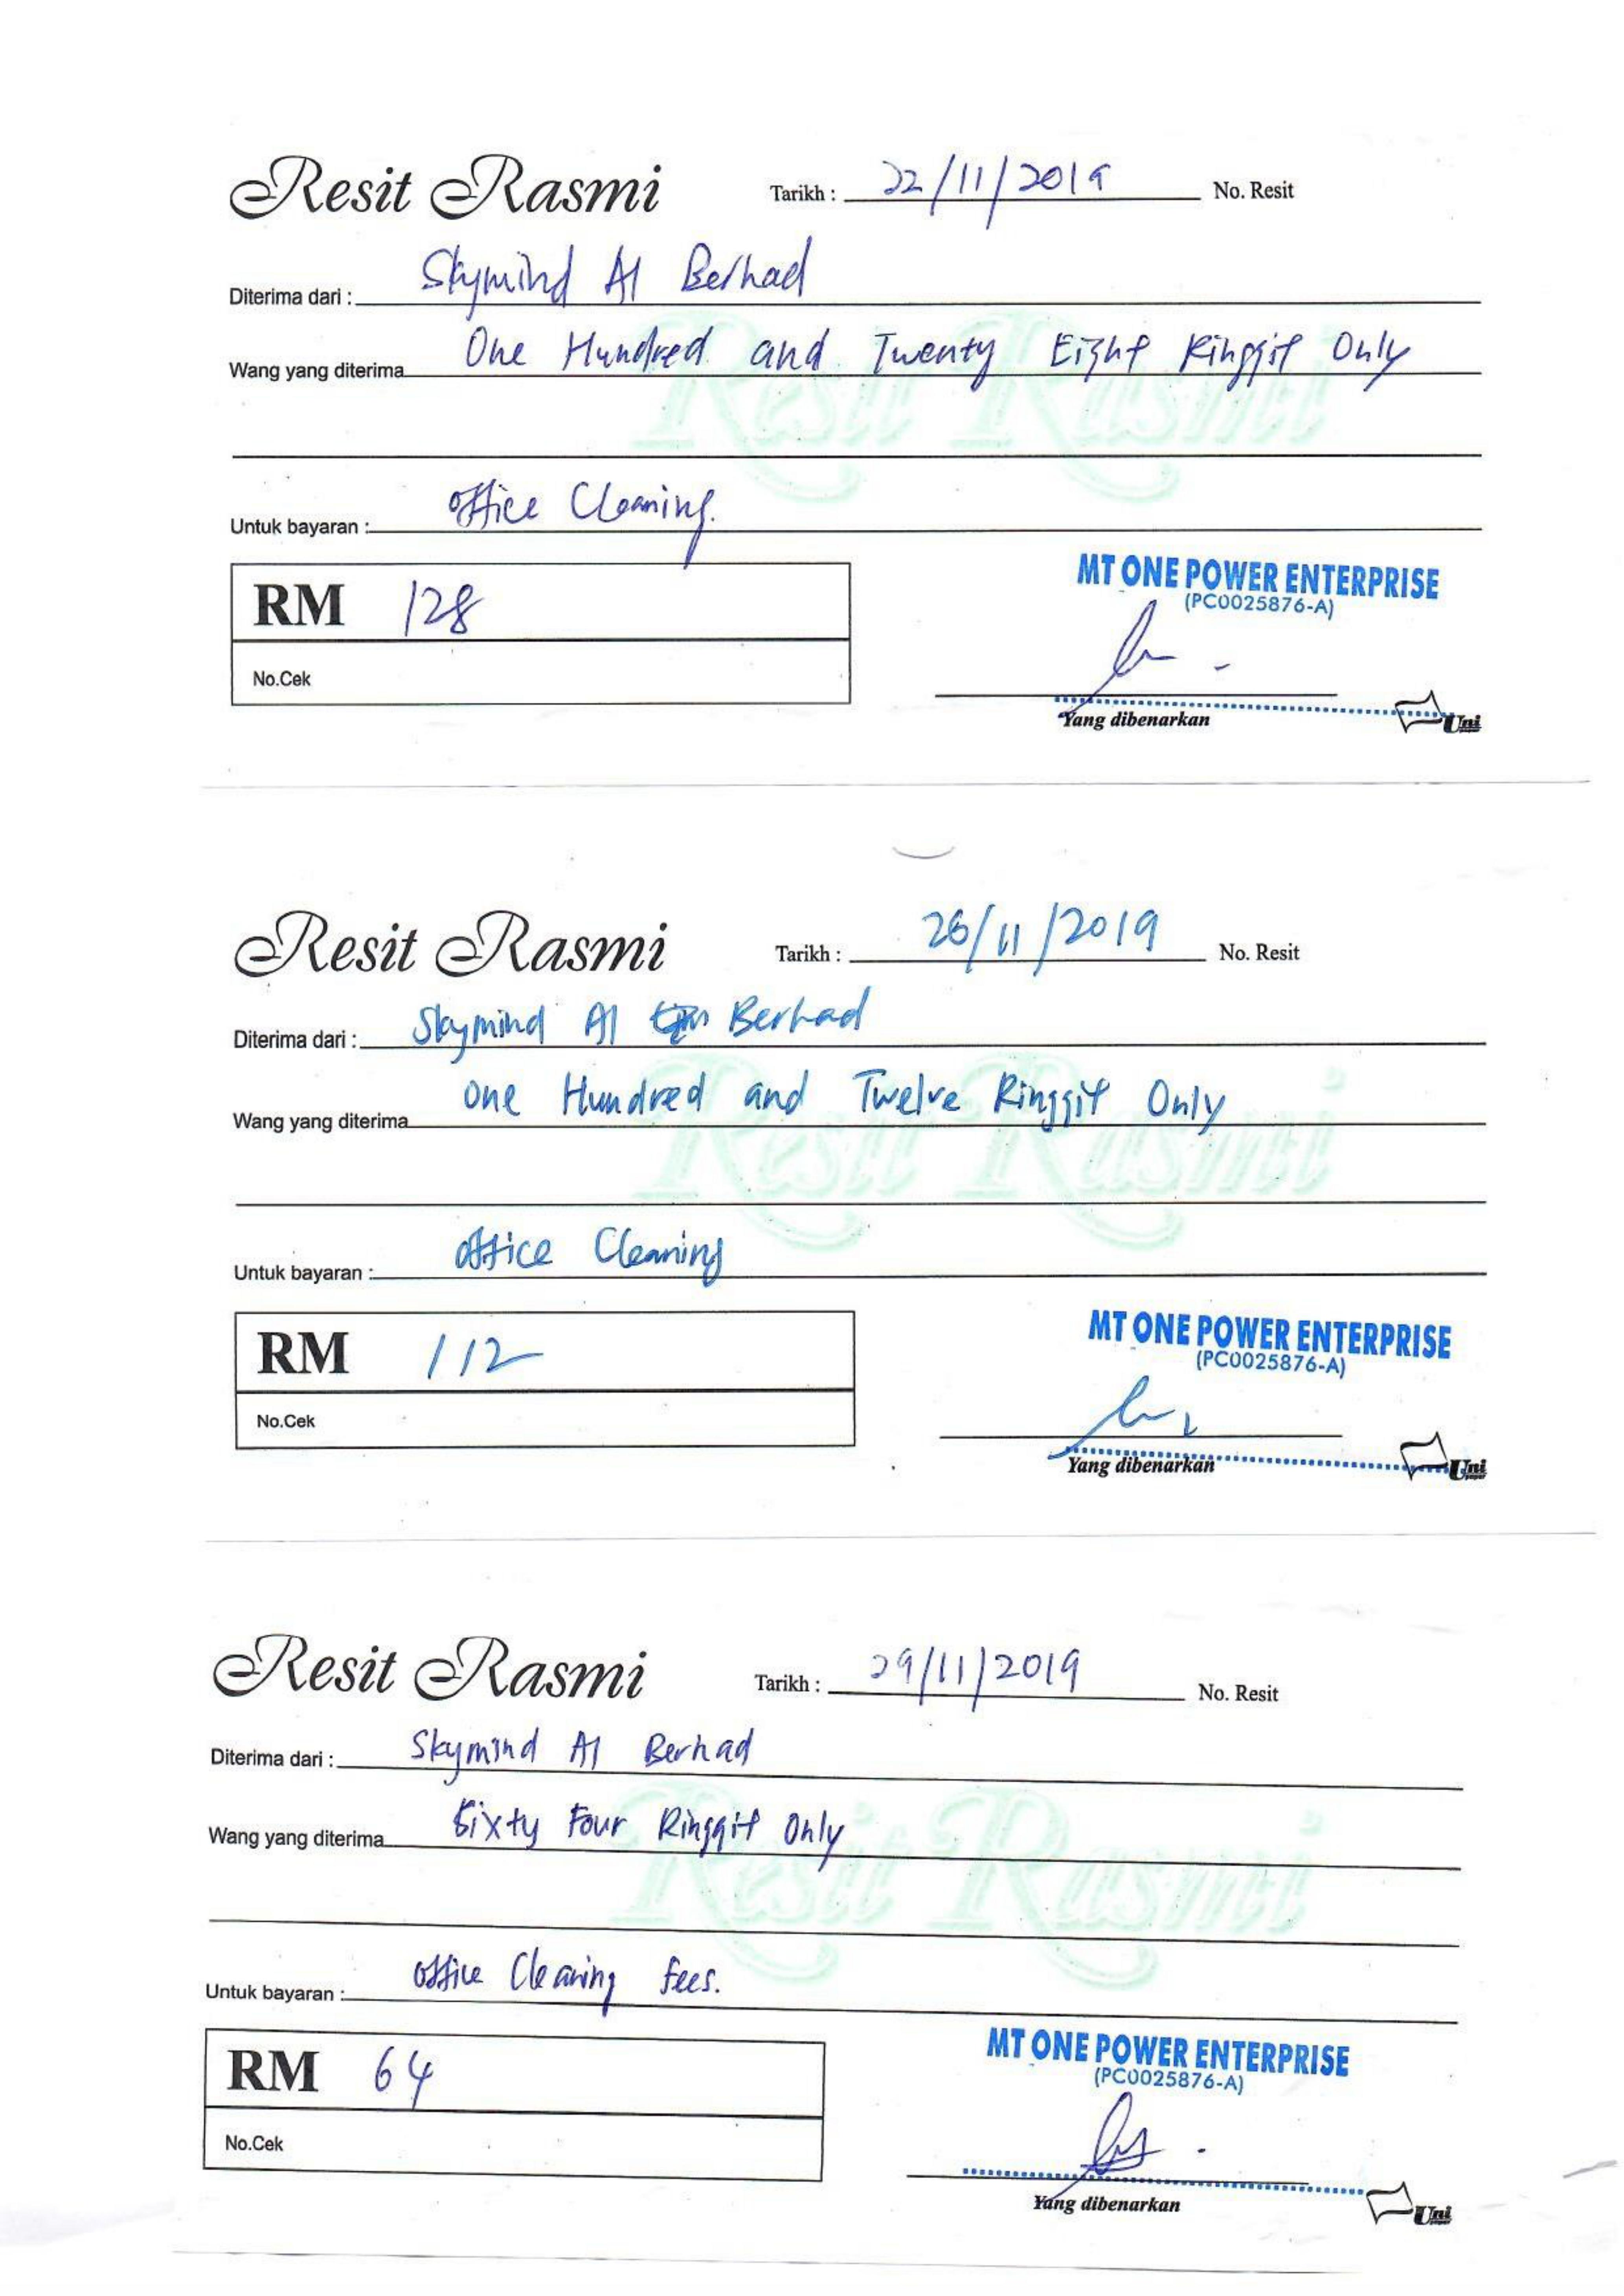 Resit Rasmi Tarikh : 22/11/2019 No. Resit
Diterima dari : Skymind AI Berhad
Wang yang diterima One Hundred and Twenty Eight Ringgit Only
Resit Rasmi
Untuk bayaran : Office Cleaning.
RM 128
No.Cek
MT ONE POWER ENTERPRISE
(PC0025876-A)
Yang dibenarkan
Uni
Resit Rasmi Tarikh : 26/11/2019 No. Resit
Diterima dari : Skymind AI Berhad
Wang yang diterima One Hundred and Twelve Ringgit Only
Resit Rasmi
Untuk bayaran : Office Cleaning
RM 112
No.Cek
MT ONE POWER ENTERPRISE
(PC0025876-A)
Yang dibenarkan
Uni
Resit Rasmi Tarikh : 29/11/2019 No. Resit
Diterima dari : Skymind AI Berhad
Wang yang diterima Sixty Four Ringgit Only
Resit Rasmi
Untuk bayaran : Office Cleaning Fees.
RM 64
No.Cek
MT ONE POWER ENTERPRISE
(PC0025876-A)
Yang dibenarkan
Uni